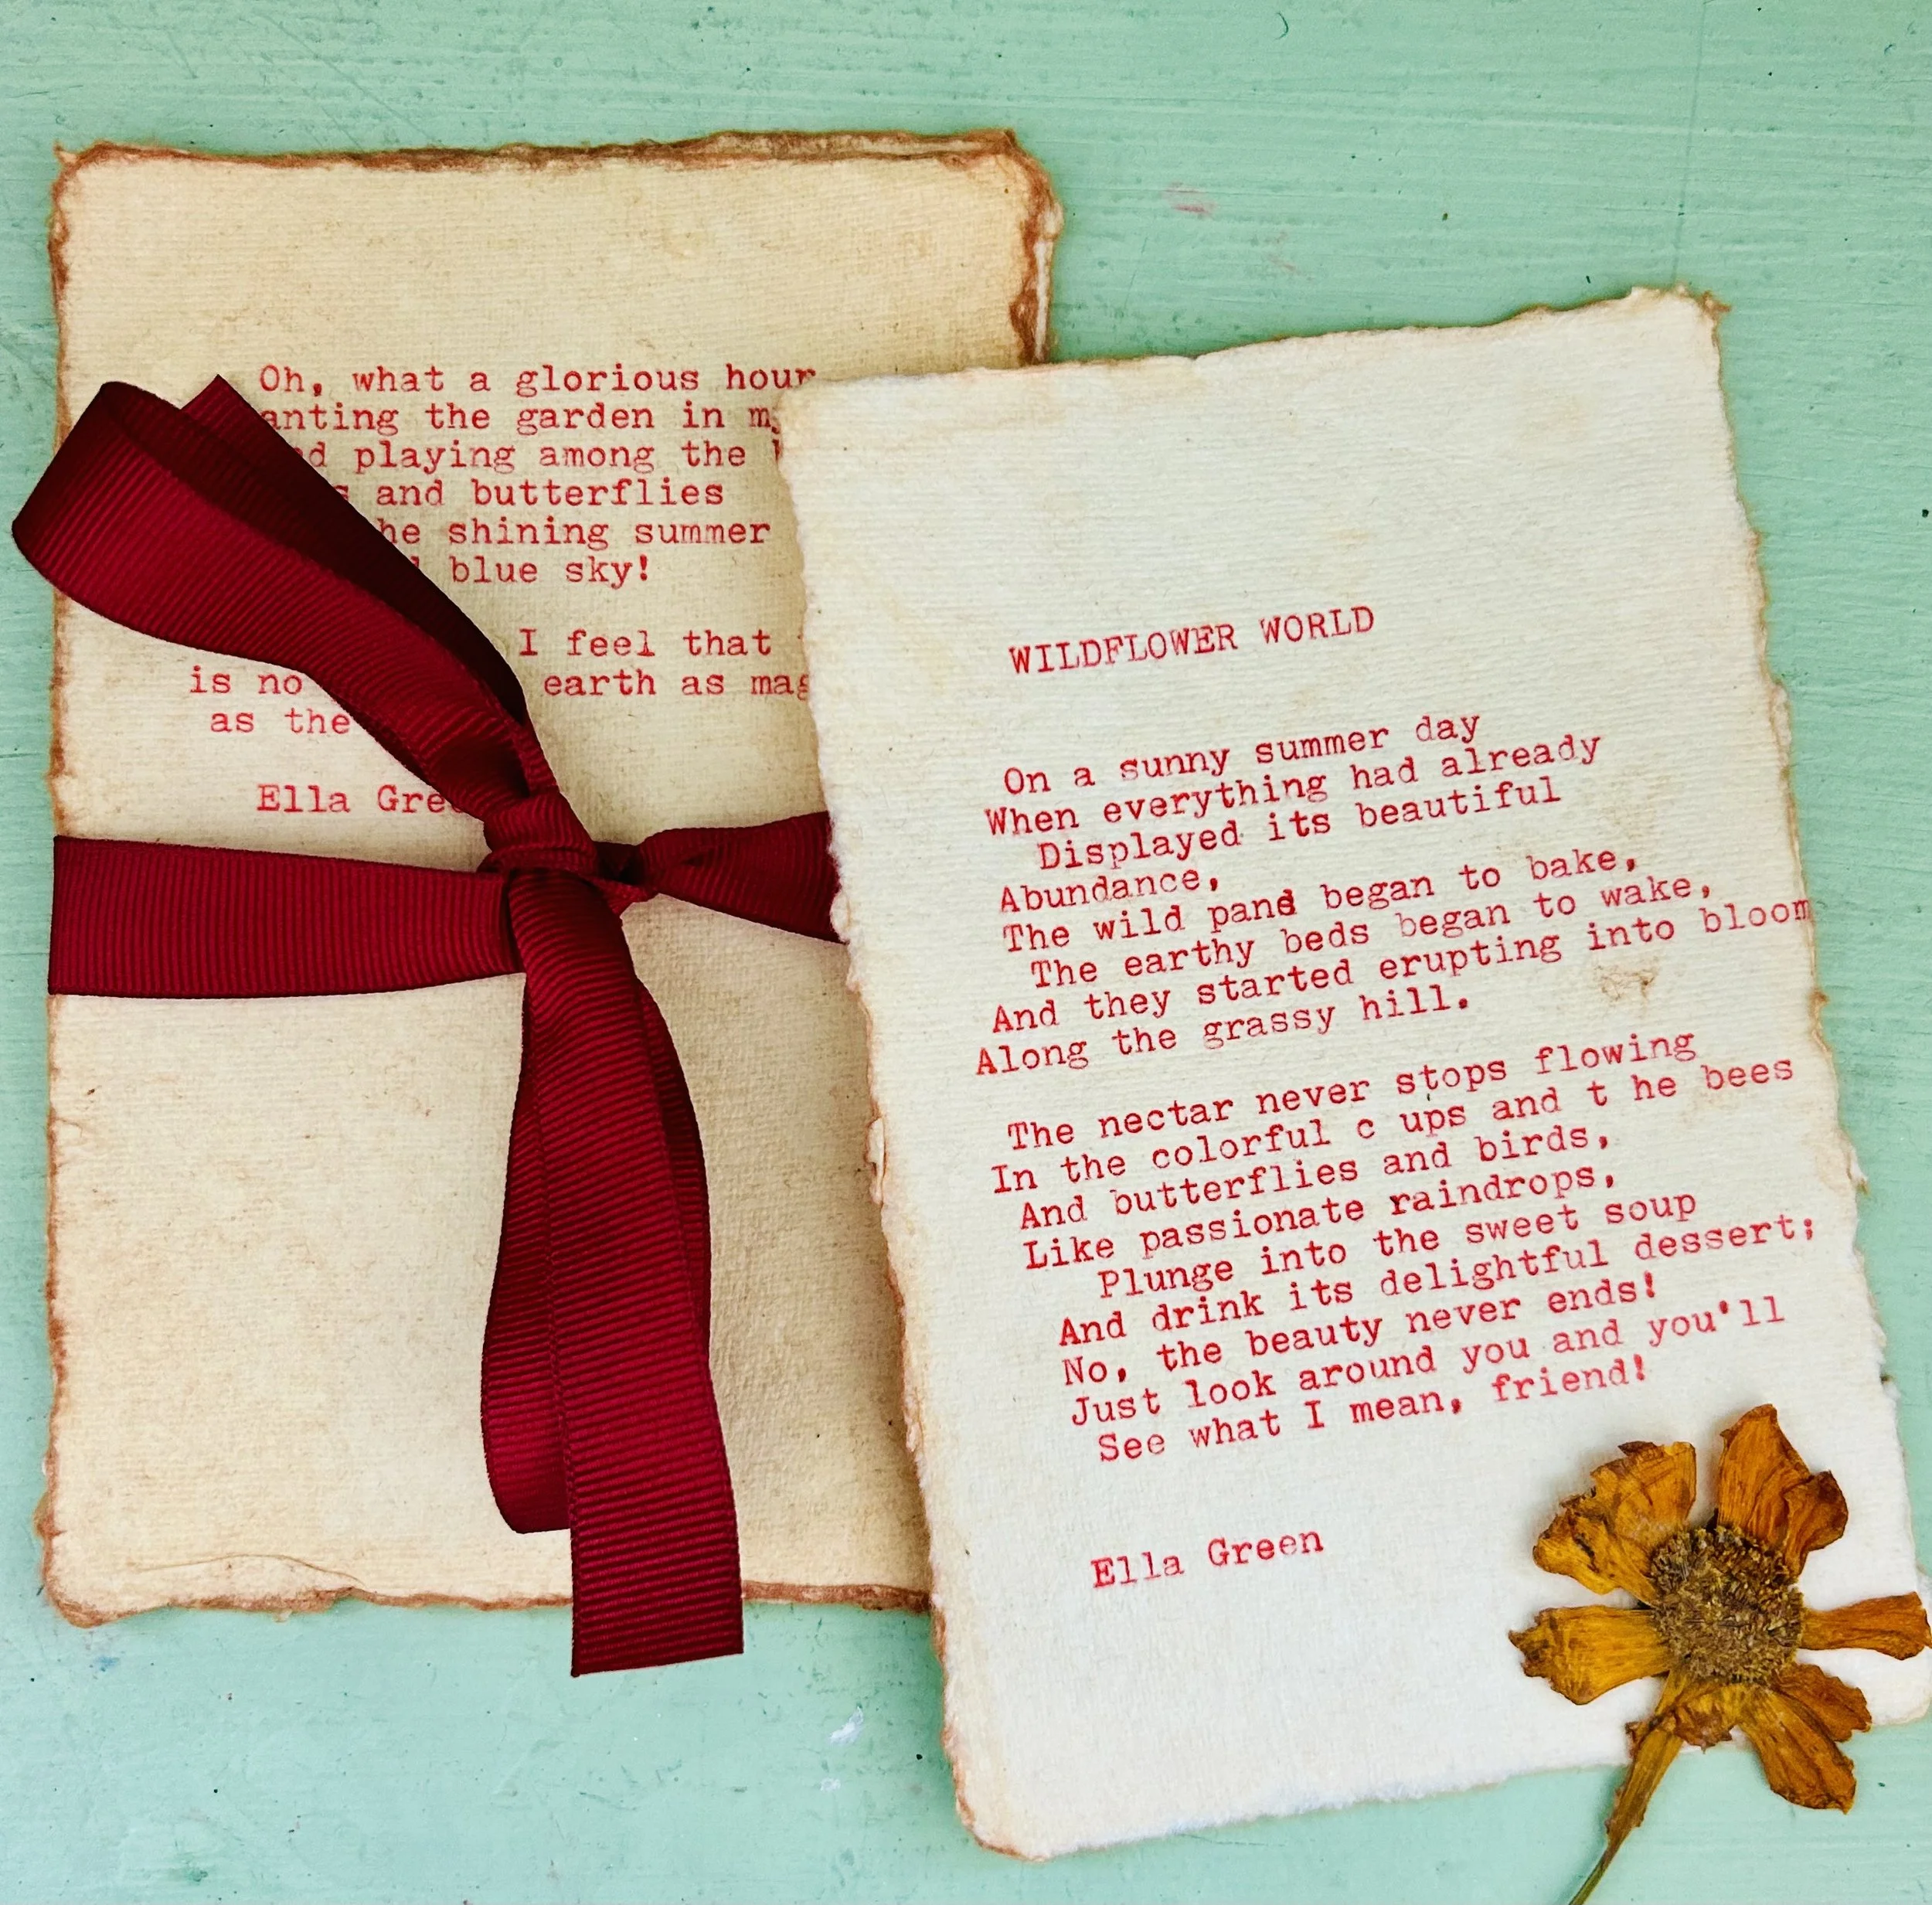 Oh, what a glorious hour
the garden in
playing among the
and butterflies
shining summer
blue sky!
I feel that
is no earth as
as the
Ella
WILDFLOWER WORLD
On a sunny summer day
When everything had already
Displayed its beautiful
Abundance,
The wild pand began to bake,
The earthy beds began to wake,
And they started erupting into bloom
Along the grassy hill.
The nectar never stops flowing
In the colorful c ups and t he bees
And butterflies and birds,
Like passionate raindrops,
Plunge into the sweet soup
And drink its delightful dessert;
No, the beauty never ends!
Just look around you and you'll
See what I mean, friend!
Ella Green